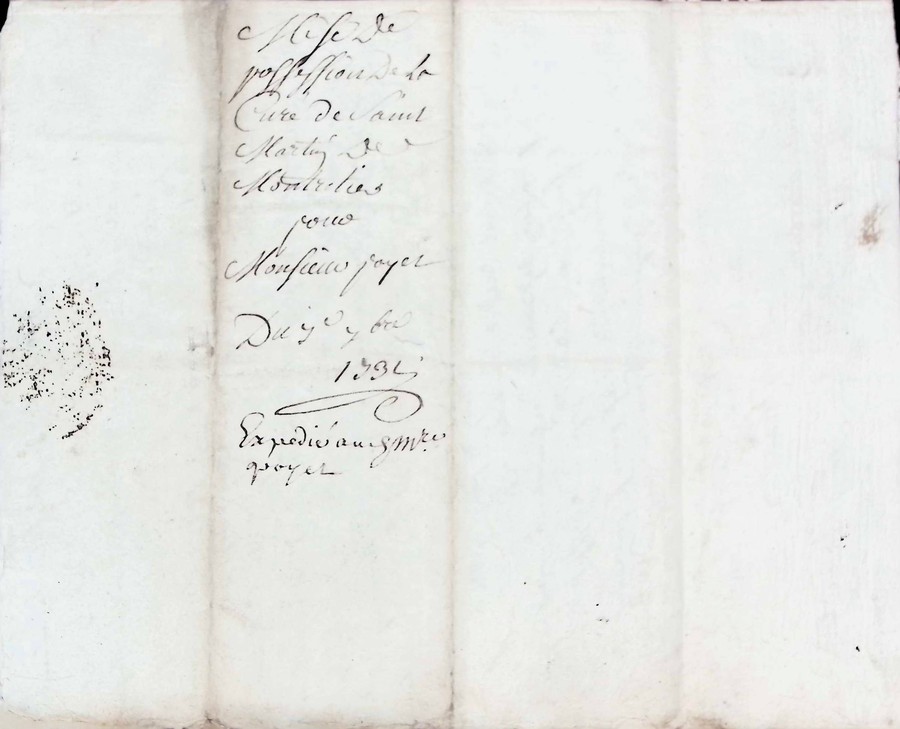 Mise De
possession De La
Cure de Saint
Martin De
Montrelier
pour
Monsieur poyet
Du 7e 7bre
173
Expedié au s Mre
poyet